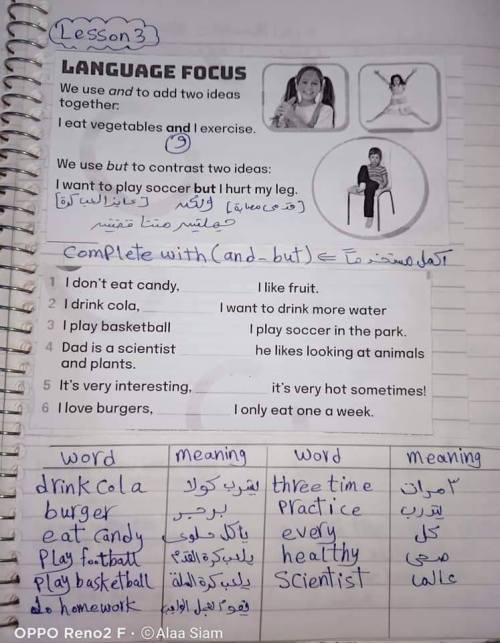 Lesson 3
LANGUAGE FOCUS
We use and to add two ideas
together:
I eat vegetables and I exercise.
و
We use but to contrast two ideas:
I want to play soccer but I hurt my leg.
[عايز العب كرة] ولكن [قدمى مصابة]
جملتين
Complete with (and - but) ⇐ أكمل مستخدماً
1 I don't eat candy, I like fruit.
2 I drink cola, I want to drink more water
3 I play basketball I play soccer in the park.
4 Dad is a scientist he likes looking at animals
and plants.
5 It's very interesting, it's very hot sometimes!
6 I love burgers, I only eat one a week.
word meaning word meaning
drink cola يشرب كولا three time ٣ مرات
burger برجر Practice يتدرب
eat candy يأكل حلوى every كل
Play football يلعب كرة القدم healthy صحى
Play basketball يلعب كرة السلة Scientist عالما
do homework يقوم بعمل الواجب
OPPO Reno2 F · ©Alaa Siam